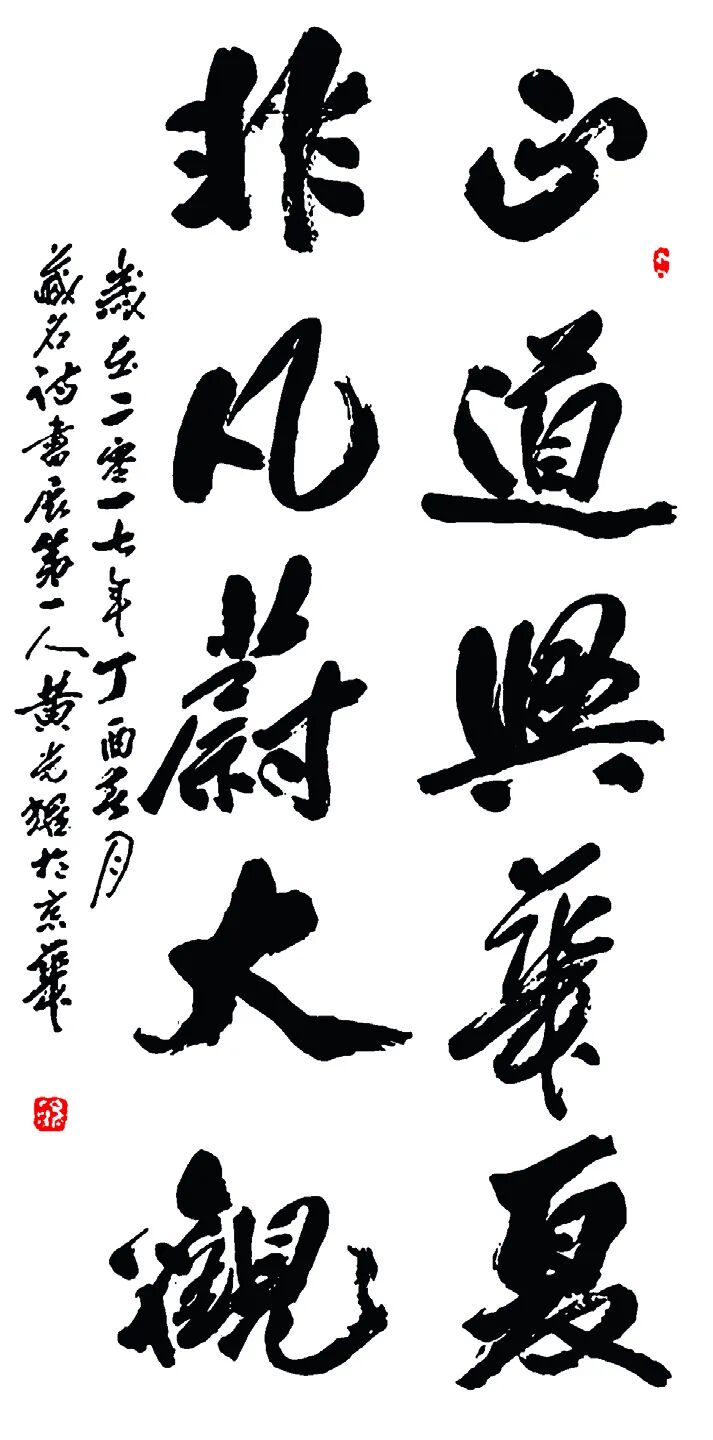 正道興華夏
非凡蔚大觀
歲在二零一七年丁酉春月
藏名詩書展第一人黄光耀於京華